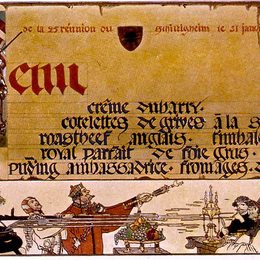 de la 25 réunion du Schiltigheim le 21 janv
enu
crème dubarry.
cotelettes de grives à la S
roastbeef anglais. timbale
royal parfait de foie gras.
puding ambassadrice. fromages.